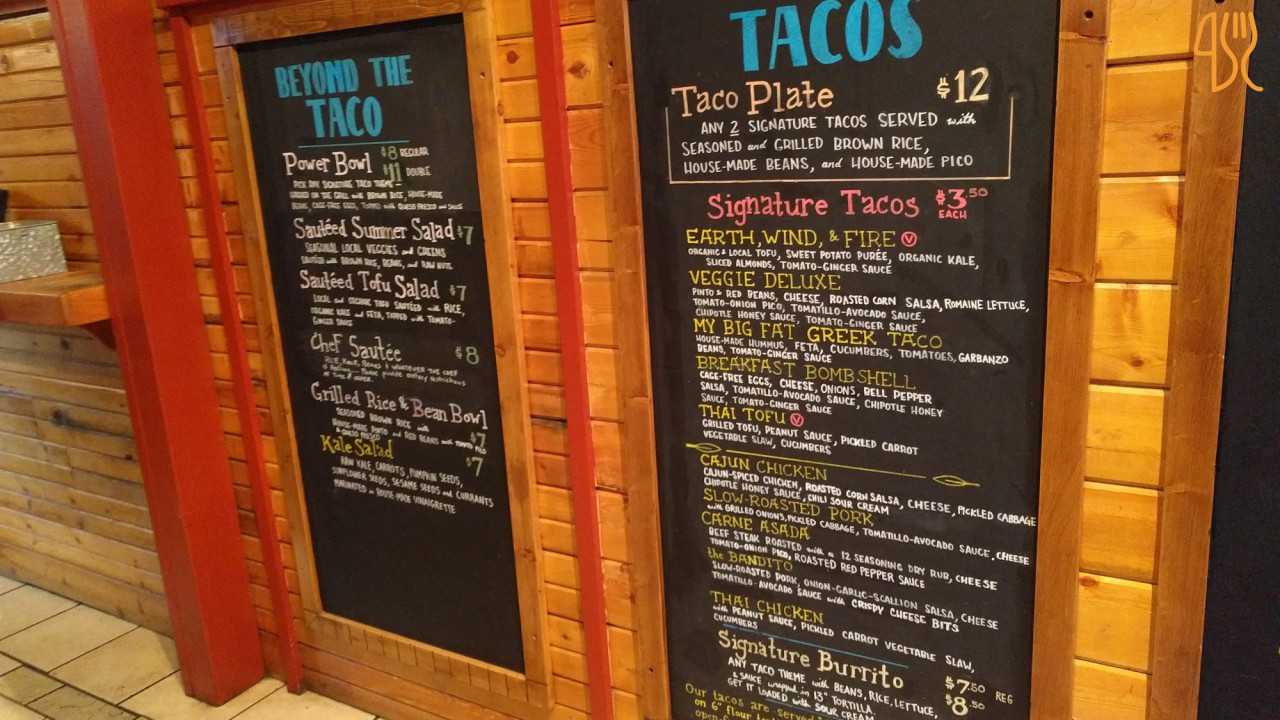 BEYOND THE
TACO
Power Bowl $8 REGULAR
$11 DOUBLE
PICK ANY SIGNATURE TACO THEME—
GRILLED ON THE GRILL with BROWN RICE, HOUSE-MADE
BEANS, CAGE-FREE EGGS, TOPPED with QUESO FRESCO and SAUCE
Sautéed Summer Salad $7
SEASONAL LOCAL VEGGIES and GREENS
SAUTÉED with BROWN RICE, BEANS, and RAW NUTS
Sautéed Tofu Salad $7
LOCAL and ORGANIC TOFU SAUTÉED with RICE,
ORGANIC KALE and FETA, TOPPED with TOMATO-
GINGER SAUCE
Chef Sautée $8
RICE, KALE, BEANS & WHATEVER THE CHEF
is feeling... Please provide dietary restrictions
at time of order.
Grilled Rice & Bean Bowl
SEASONED BROWN RICE with
HOUSE-MADE PINTO and RED BEANS with TOMATO PICO
& QUESO FRESCO $7
Kale Salad $7
RAW KALE, CARROTS, PUMPKIN SEEDS,
SUNFLOWER SEEDS, SESAME SEEDS and CURRANTS
MARINATED in HOUSE-MADE VINAIGRETTE
TACOS
Taco Plate $12
ANY 2 SIGNATURE TACOS SERVED with
SEASONED and GRILLED BROWN RICE,
HOUSE-MADE BEANS, and HOUSE-MADE PICO
Signature Tacos $3.50
EACH
EARTH, WIND, & FIRE V
ORGANIC & LOCAL TOFU, SWEET POTATO PURÉE, ORGANIC KALE,
SLICED ALMONDS, TOMATO-GINGER SAUCE
VEGGIE DELUXE
PINTO & RED BEANS, CHEESE, ROASTED CORN SALSA, ROMAINE LETTUCE,
TOMATO-ONION PICO, TOMATILLO-AVOCADO SAUCE,
CHIPOTLE HONEY SAUCE, TOMATO-GINGER SAUCE
MY BIG FAT GREEK TACO
HOUSE-MADE HUMMUS, FETA, CUCUMBERS, TOMATOES, GARBANZO
BEANS, TOMATO-GINGER SAUCE
BREAKFAST BOMBSHELL
CAGE-FREE EGGS, CHEESE, ONIONS, BELL PEPPER
SALSA, TOMATILLO-AVOCADO SAUCE, CHIPOTLE HONEY
SAUCE, TOMATO-GINGER SAUCE
THAI TOFU V
GRILLED TOFU, PEANUT SAUCE, PICKLED CARROT
VEGETABLE SLAW, CUCUMBERS
CAJUN CHICKEN
CAJUN-SPICED CHICKEN, ROASTED CORN SALSA, CHEESE, PICKLED CABBAGE
CHIPOTLE HONEY SAUCE, CHILI SOUR CREAM
SLOW-ROASTED PORK
with GRILLED ONIONS, PICKLED CABBAGE, TOMATILLO-AVOCADO SAUCE, CHEESE
CARNE ASADA
BEEF STEAK ROASTED with a 12 SEASONING DRY RUB, CHEESE
TOMATO-ONION PICO, ROASTED RED PEPPER SAUCE
the BANDITO
SLOW-ROASTED PORK, ONION-GARLIC-SCALLION SALSA, CHEESE
TOMATILLO-AVOCADO SAUCE with CRISPY CHEESE BITS
THAI CHICKEN
with PEANUT SAUCE, PICKLED CARROT VEGETABLE SLAW,
CUCUMBERS
Signature Burrito
ANY TACO THEME with BEANS, RICE, LETTUCE, $7.50 REG
& SAUCE wrapped in 13" TORTILLA.
GET IT LOADED with SOUR CREAM $8.50
Our tacos are served
on 6" flour